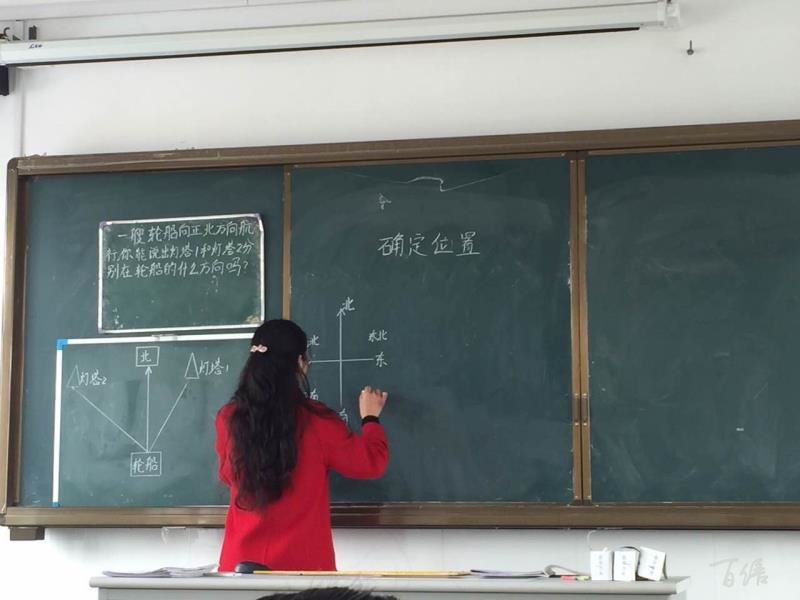 一艘轮船向正北方向航
行,你能说出灯塔1和灯塔2分
别在轮船的什么方向吗?
北
灯塔2
灯塔1
轮船
确定位置
北
北
东北
东
南
南
百信